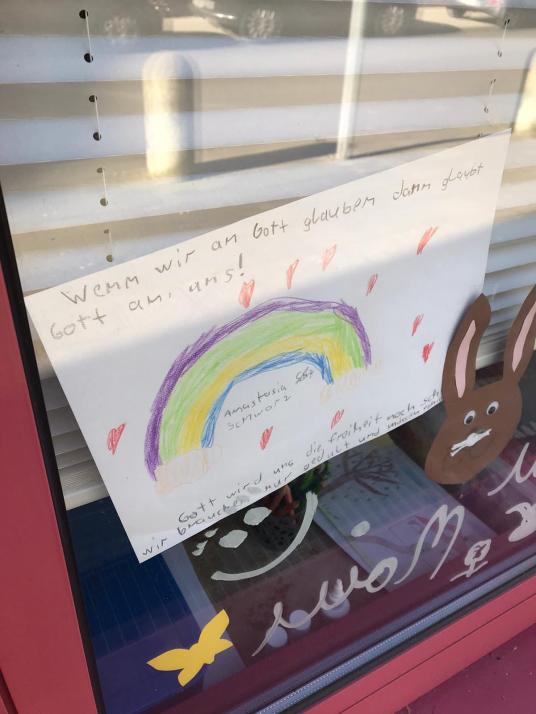 Wenn wir an Gott glauben dann glaubt
Gott an, uns!
Anastasia
Schwarz
Gott wird uns die freiheit noch
wir brauchen nur gedult und